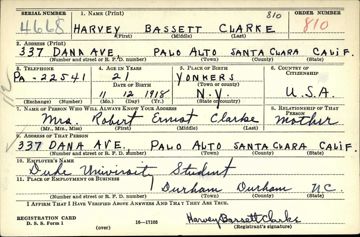 SERIAL NUMBER 1. NAME (Print) 810 ORDER NUMBER
4668 HARVEY BASSETT CLARKE 810
(First) (Middle) (Last)
2. ADDRESS (Print)
337 DANA AVE. PALO ALTO SANTA CLARA CALIF.
(Number and street or R. F. D. number) (Town) (County) (State)
3. TELEPHONE 4. AGE IN YEARS 5. PLACE OF BIRTH 6. COUNTRY OF CITIZENSHIP
PA-22541 21 YONKERS
DATE OF BIRTH (Town or county)
11 12 1918 N.Y. U.S.A.
(Exchange) (Number) (Mo.) (Day) (Yr.) (State or country)
7. NAME OF PERSON WHO WILL ALWAYS KNOW YOUR ADDRESS 8. RELATIONSHIP OF THAT PERSON
Mrs. Robert Ernst Clarke Mother
(Mr., Mrs., Miss) (First) (Middle) (Last)
9. ADDRESS OF THAT PERSON
337 DANA AVE. PALO ALTO SANTA CLARA CALIF.
(Number and street or R. F. D. number) (Town) (County) (State)
10. EMPLOYER'S NAME
Duke University Student
11. PLACE OF EMPLOYMENT OR BUSINESS
Durham Durham N.C.
(Number and street or R. F. D. number) (Town) (County) (State)
I AFFIRM THAT I HAVE VERIFIED ABOVE ANSWERS AND THAT THEY ARE TRUE.
REGISTRATION CARD
D. S. S. Form 1 (over) 16-17105 Harvey Bassett Clarke
(Registrant's signature)